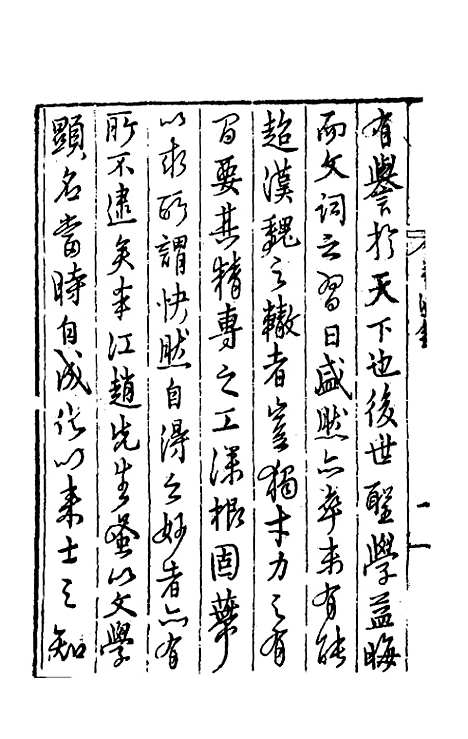 有譽於天下也後世聖學益晦
而文詞之習日盛然亦卒未有能
超漢魏之轍者豈獨才力之有
間要其精專之工深根固葉
以求所謂快然自得之妙者亦有
所不逮矣本江趙先生蚤以文學
顯名當時自成化以來士之知